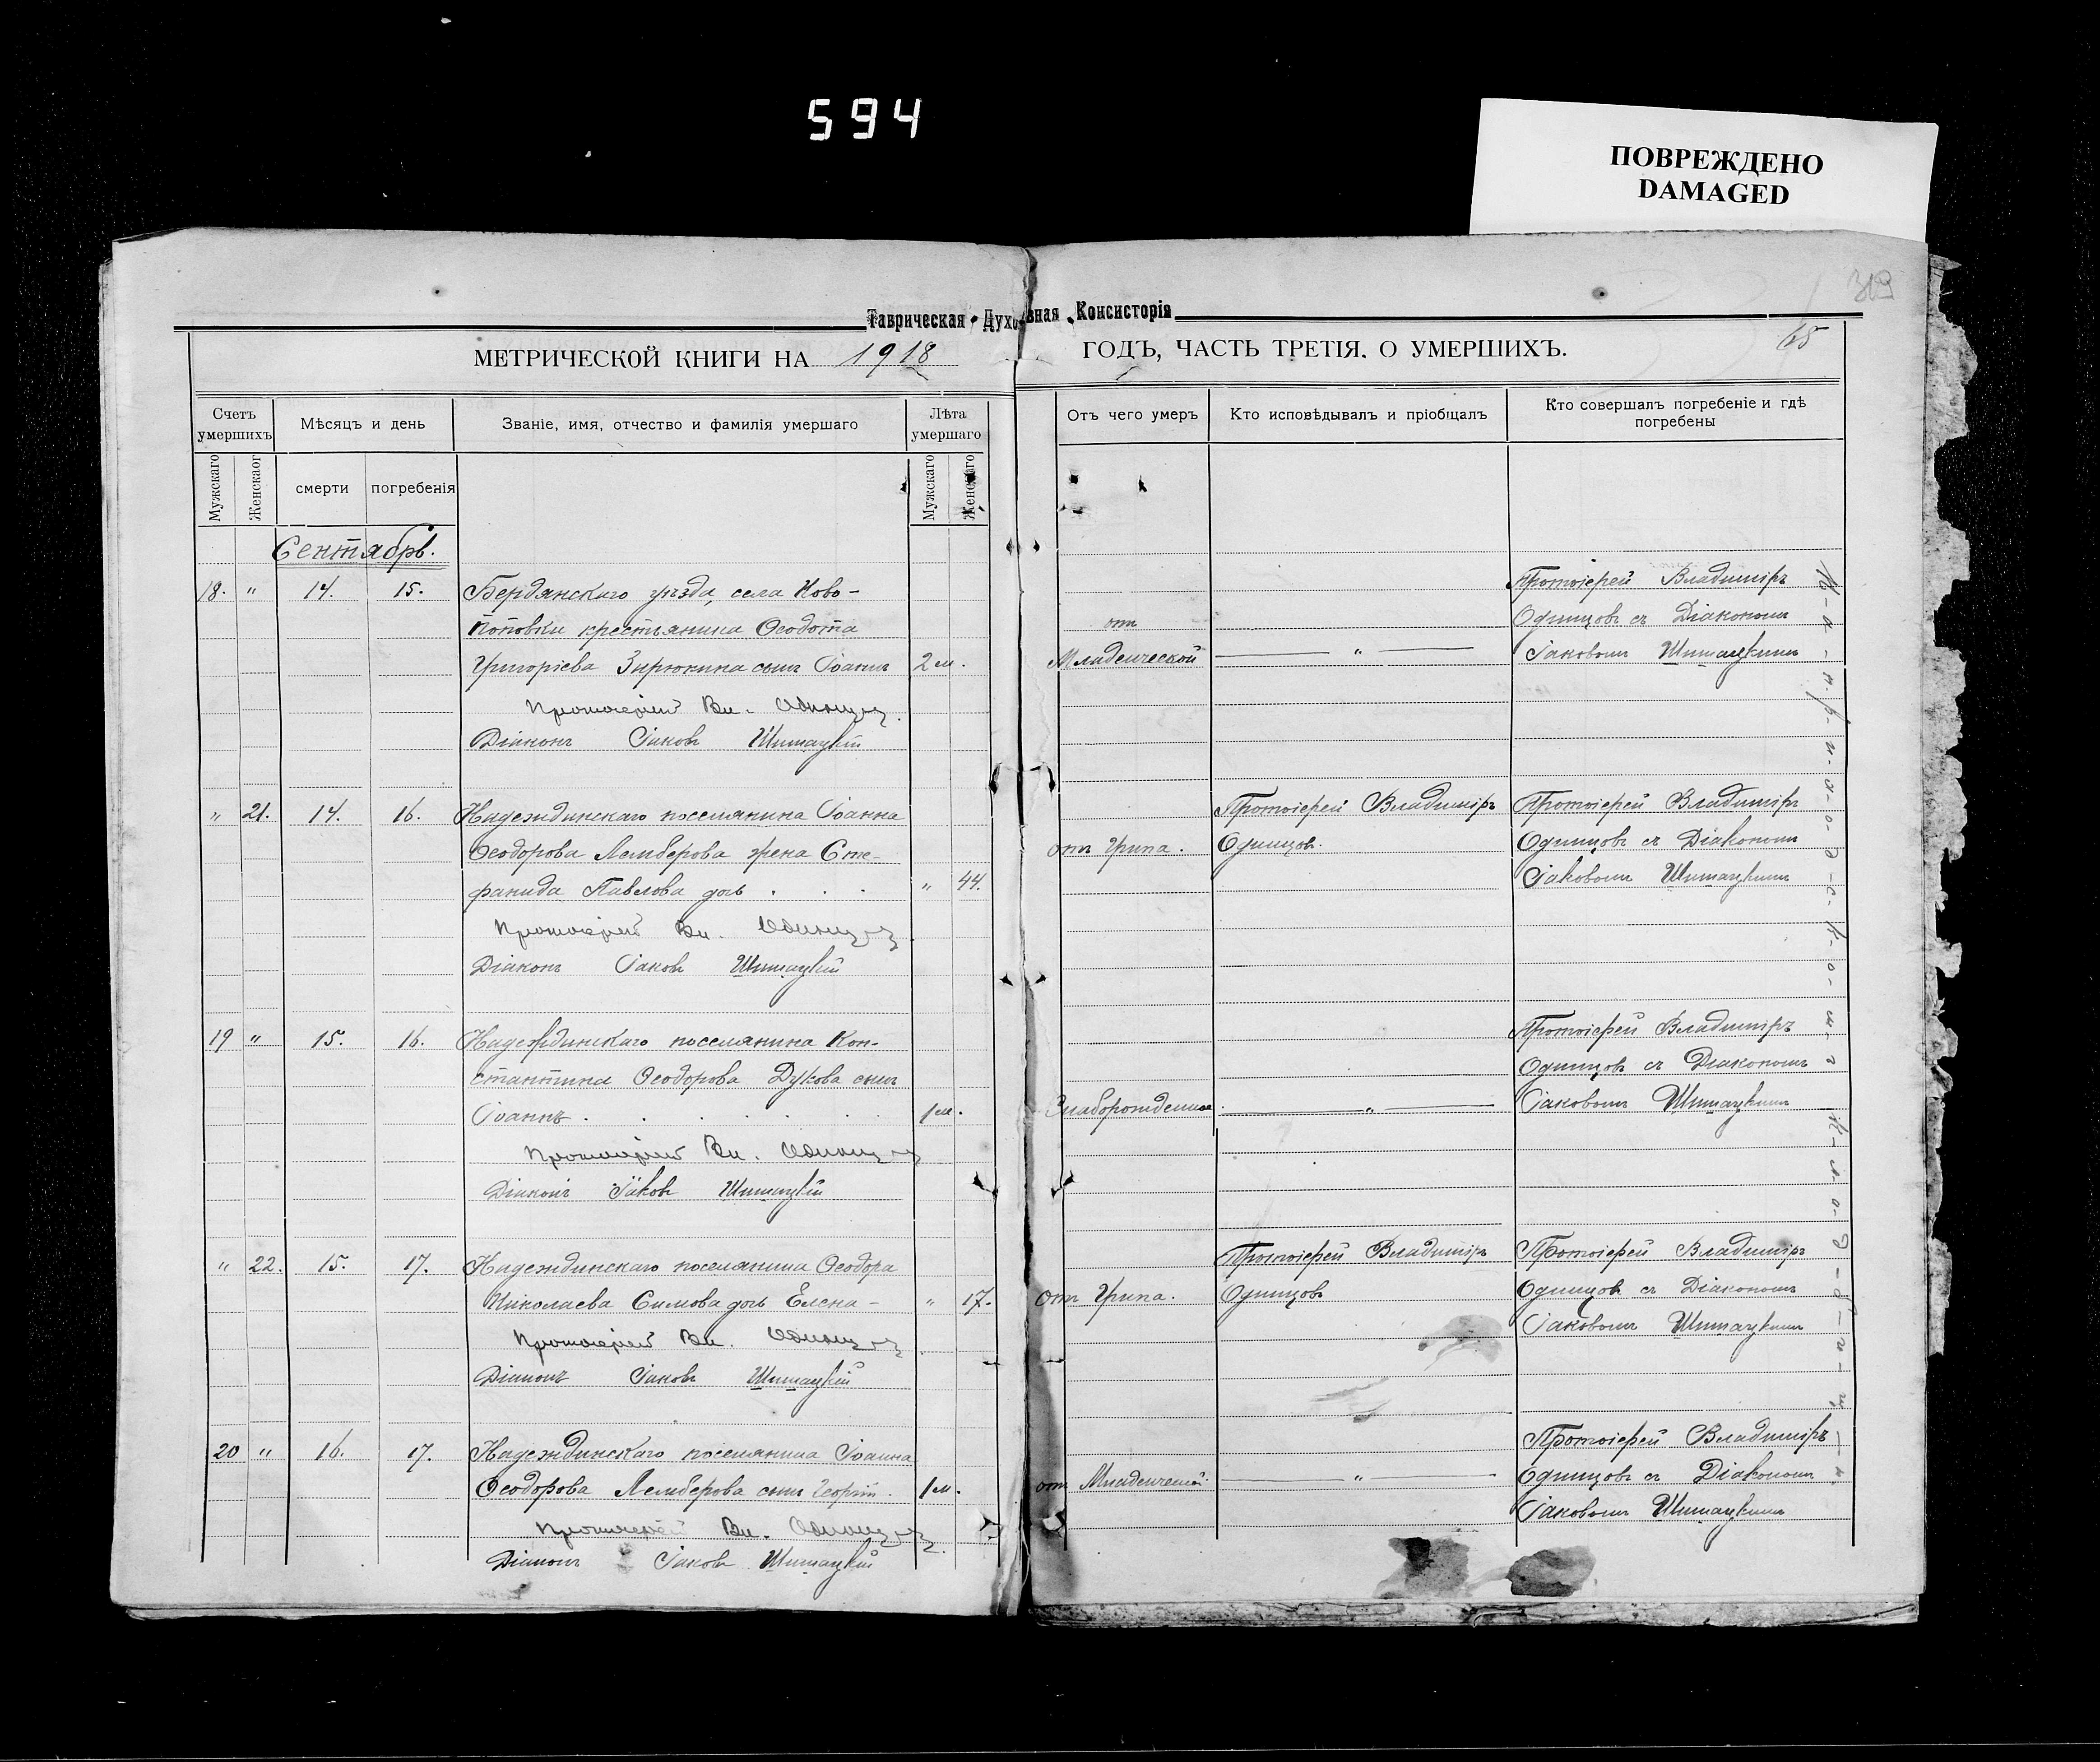 594
ПОВРЕЖДЕНО
DAMAGED
319
Таврическая Духовная Консисторія
65
МЕТРИЧЕСКОЙ КНИГИ НА 1918 ГОДЪ, ЧАСТЬ ТРЕТІЯ. О УМЕРШИХЪ.
Счетъ умершихъ
Мѣсяцъ и день
Званіе, имя, отчество и фамилія умершаго
Лѣта умершаго
Отъ чего умеръ
Кто исповѣдывалъ и пріобщалъ
Кто совершалъ погребеніе и гдѣ погребены
Мужскаго
Женскаог
смерти
погребенія
Мужскаго
Женскаго
Сентябрь.
18. " 14. 15. Бердянскаго уѣзда, села Ново- Протоіерей Владиміръ
поповки крестьянина Ѳеодота отъ Одинцовъ съ Діакономъ
Григоріева Зирюкина сынъ Іоаннъ 2 м. Младенческой " Іаковомъ Шишацкимъ
Протоіерей Вл. Одинцовъ
Діаконъ Іаковъ Шишацкій
" 21. 14. 16. Надеждинскаго поселянина Іоанна Протоіерей Владиміръ Протоіерей Владиміръ
Ѳеодорова Лемберова жена Сте- отъ Грипа. Одинцовъ. Одинцовъ съ Діакономъ
фанида Павлова дочь . . . " 44. Іаковомъ Шишацкимъ
Протоіерей Вл. Одинцовъ
Діаконъ Іаковъ Шишацкій
19 " 15. 16. Надеждинскаго поселянина Кон- Протоіерей Владиміръ
стантина Ѳеодорова Дукова сынъ Одинцовъ съ Діакономъ
Іоаннъ . . . . . 1 м. " Іаковомъ Шишацкимъ
Протоіерей Вл. Одинцовъ
Діаконъ Іаковъ Шишацкій
" 22. 15. 17. Надеждинскаго поселянина Ѳеодора Протоіерей Владиміръ Протоіерей Владиміръ
Николаева Симова дочь Елена - " 17. отъ Грипа. Одинцовъ Одинцовъ съ Діакономъ
Іаковомъ Шишацкимъ
Протоіерей Вл. Одинцовъ
Діаконъ Іаковъ Шишацкій
20 " 16. 17. Надеждинскаго поселянина Іоанна Протоіерей Владиміръ
Ѳеодорова Лемберова сынъ Георгій. 1 м. отъ Младенческой " Одинцовъ съ Діакономъ
Іаковомъ Шишацкимъ
Протоіерей Вл. Одинцовъ
Діаконъ Іаковъ Шишацкій